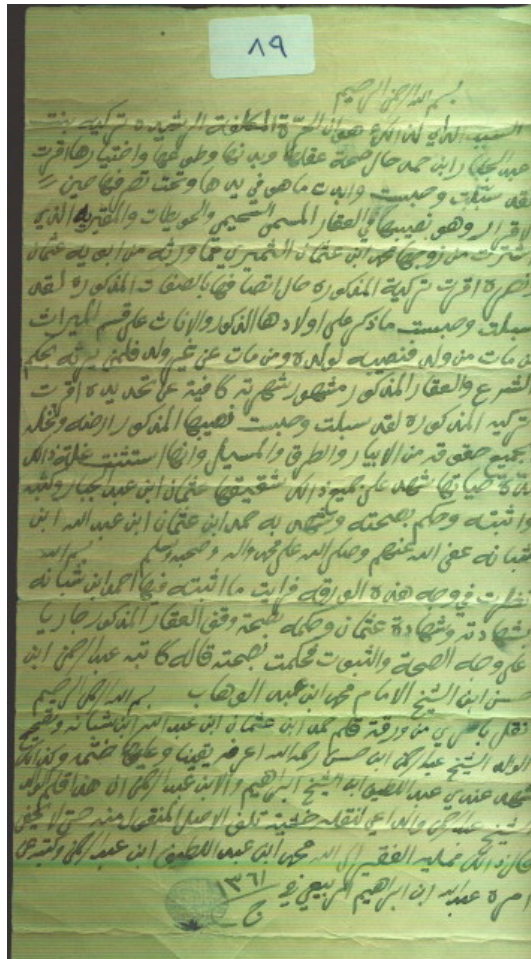 ٨٩
بسم الله الرحمن الرحيم
السبب الداعي لذلك هو ان الحرة المكلفة الرشيدة تركيه بنت
عبد الجبار ابن حمد حال صحة عقلها وبدنها وطوعها واختيارها اقرت
لقد سبلت وحبست وابدت ماهو في يدها وتحت تصرفها حين
الاقرار وهو نصيبها في العقار المسمى السحيمي والحويطات والمقيبريه الذي
اشترت من زوجها محمد ابن عثمان الشميري مما ورثه من ابويه عثمان
اقرت تركية المذكوره حال اتصافها بالصفات المذكوره لقد
سبلت وحبست ماذكر على اولادها الذكور والاناث على قسم الميراث
من مات من ولد فنصيبه لولده ومن مات عن غير ولد فلمن يرثه بحكم
الشرع والعقار المذكور مشهور شهرته كافية عن تحديده اقرت
تركيه المذكوره لقد سبلت وحبست نصيبها المذكور ارضه ونخله
بجميع حقوقه من الابيار والطرق والمسيل وانها استثنت غلة ذالك
مدة حياتها شهد على جميع ذالك شقيقها عثمان ابن عبد الجبار وكتبه
واثبته وحكم بصحته وشهد به حمد ابن عثمان ابن عبد الله ابن
شبانه عفى الله عنهم وصلى الله على محمد واله وصحبه وسلم بسم الله
نظرت في وجه هذه الورقه فرايت ما اثبته فيها احمد ابن شبانه
شهادته وشهادة عثمان وحكمه بصحة وقف العقار المذكور جاريا
على وجه الصحة والثبوت فحكمت بصحته قاله كاتبه عبد الرحمن ابن
حسن ابن الشيخ الامام محمد ابن عبد الوهاب بسم الله الرحمن الرحيم
نقل من ورقة قلم حمد ابن عثمان ابن عبد الله ابن شبانه
الوالد الشيخ عبد الرحمن ابن حسن رحمه الله اعرفه يقينا وعليها ختمه وكذالك
شهد عندي عبد اللطيف ابن الشيخ ابراهيم والابن عبد الرحمن ان هذا قلم الوالد
الشيخ عبد الرحمن والداعي لنقله خشية تلف الاصل المنقول منه حتى لا يخفى
قال ذالك ممليه الفقير الى الله محمد ابن عبد اللطيف ابن عبد الرحمن وكتبه عن
امره عبد الله ابن ابراهيم الربيعي في
١٣٦١
ج